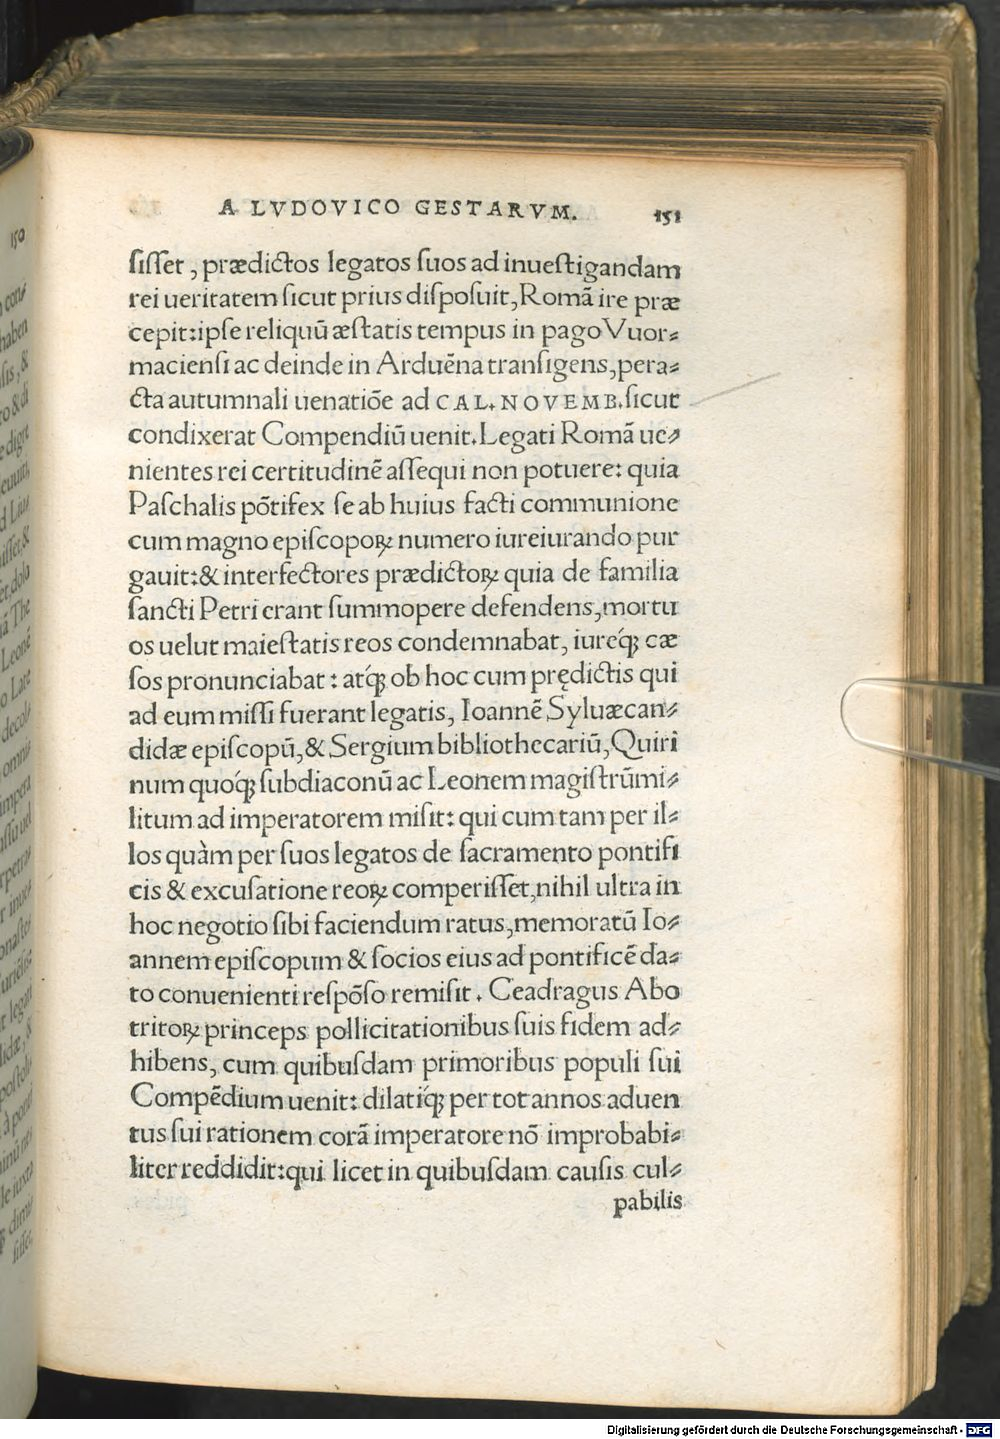 A LVDOVICO GESTARVM. 151
ſiſſet, prædictos legatos ſuos ad inueſtigandam
rei ueritatem ſicut prius diſpoſuit, Romā ire præ
cepit: ipſe reliquū æſtatis tempus in pago Vuor⸗
macienſi ac deinde in Arduēna tranſigens, pera⸗
cta autumnali uenatiōe ad CAL. NOVEMB. ſicut
condixerat Compendiū uenit. Legati Romā ue⸗
nientes rei certitudinē aſſequi non potuere: quia
Paſchalis pōtifex ſe ab huius facti communione
cum magno epiſcopoꝝ numero iureiurando pur
gauit: & interfectores prædictoꝝ quia de familia
ſancti Petri erant ſummopere defendens, mortu
os uelut maieſtatis reos condemnabat, iureq́ꝫ cæ
ſos pronunciabat: atq́ꝫ ob hoc cum prędictis qui
ad eum miſſi fuerant legatis, Ioannē Syluæcan⸗
didæ epiſcopū, & Sergium bibliothecariū, Quiri
num quoq́ꝫ ſubdiaconū ac Leonem magiſtrū mi⸗
litum ad imperatorem miſit: qui cum tam per il⸗
los quàm per ſuos legatos de ſacramento pontifi
cis & excuſatione reoꝝ comperiſſet, nihil ultra in
hoc negotio ſibi faciendum ratus, memoratū Io⸗
annem epiſcopum & ſocios eius ad pontificē da⸗
to conuenienti reſpōſo remiſit. Ceadragus Abo
tritoꝝ princeps pollicitationibus ſuis fidem ad⸗
hibens, cum quibuſdam primoribus populi ſui
Compēdium uenit: dilatiq́ꝫ per tot annos aduen
tus ſui rationem corā imperatore nō improbabi⸗
liter reddidit: qui licet in quibuſdam cauſis cul⸗
pabilis
150
Digitalisierung gefördert durch die Deutsche Forschungsgemeinschaft - DFG